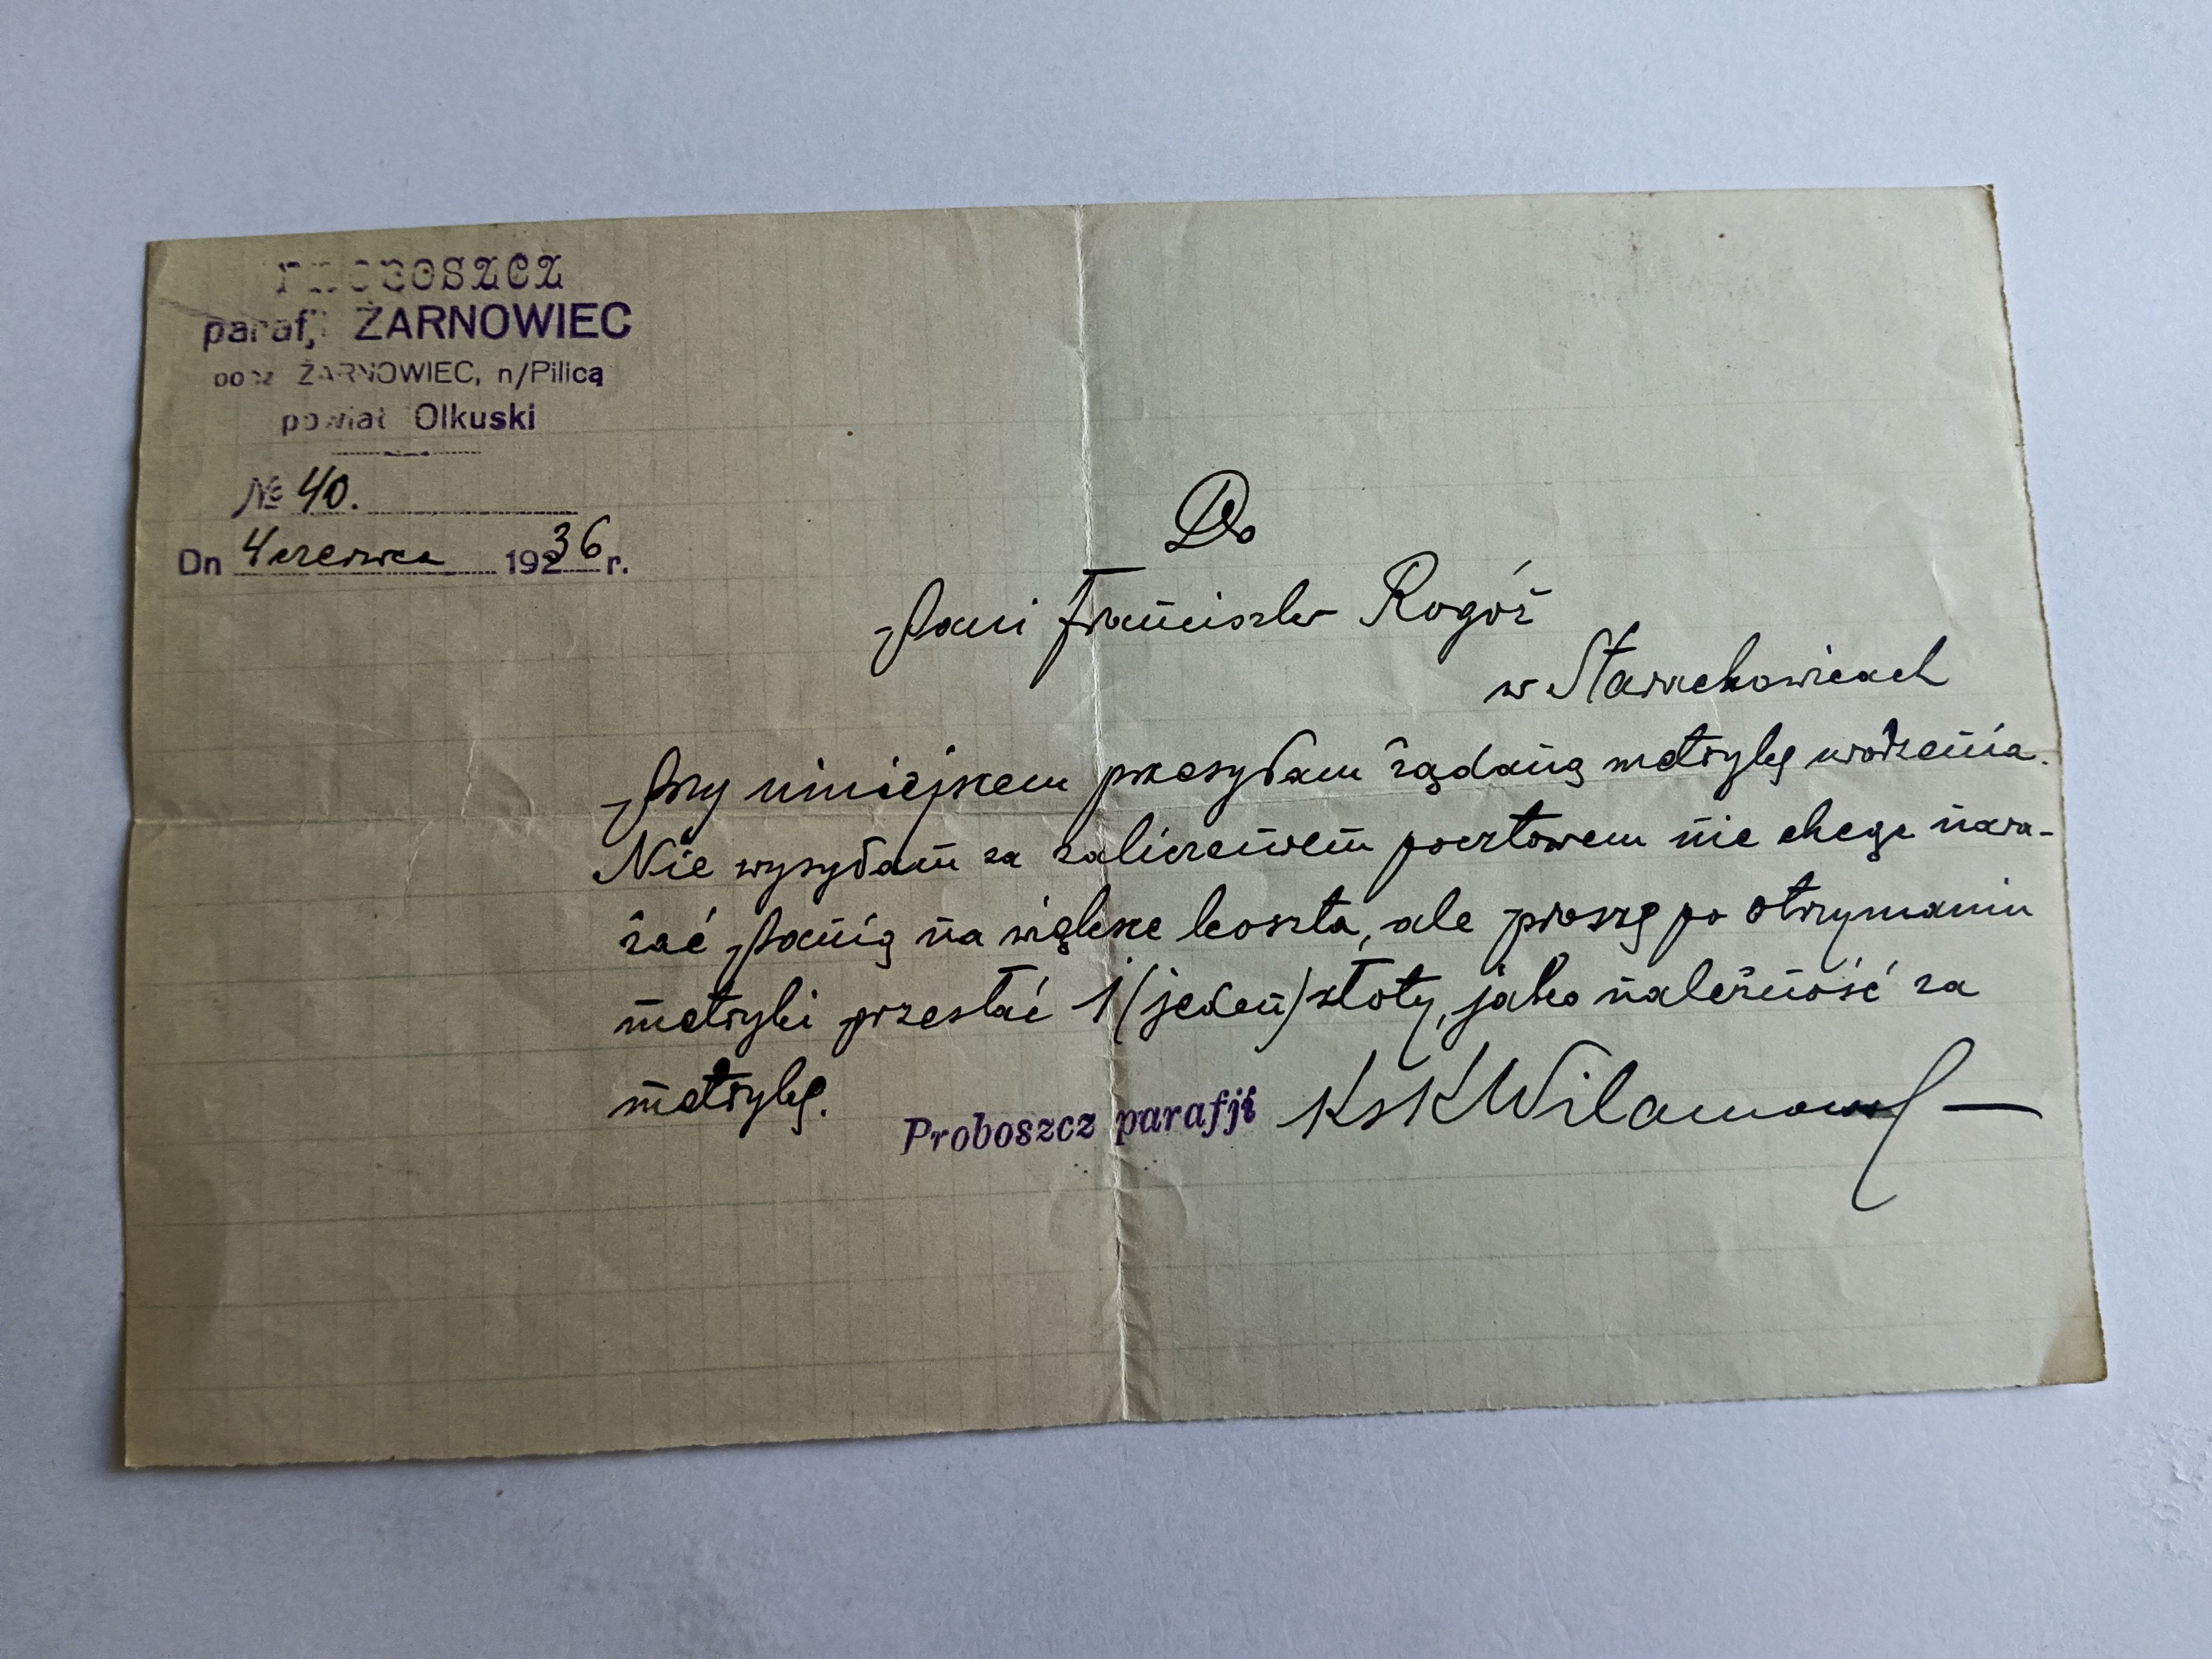 PROBOSZCZ
parafji ŻARNOWIEC
pocz. ŻARNOWIEC, n/Pilicą
powiat Olkuski
№ 40.
Dn 4 czerwca 1936 r.
Do
Pani Franciszki Rogóż
w Starachowicach
Przy niniejszem przesyłam żądaną metrykę urodzenia.
Nie wysyłam za zaliczeniem pocztowem nie chcąc nara-
żać Panią na większe koszta, ale proszę po otrzymaniu
metryki przesłać 1 (jeden) złoty, jako należność za
metrykę.
Proboszcz parafji Ks K Wilamowski